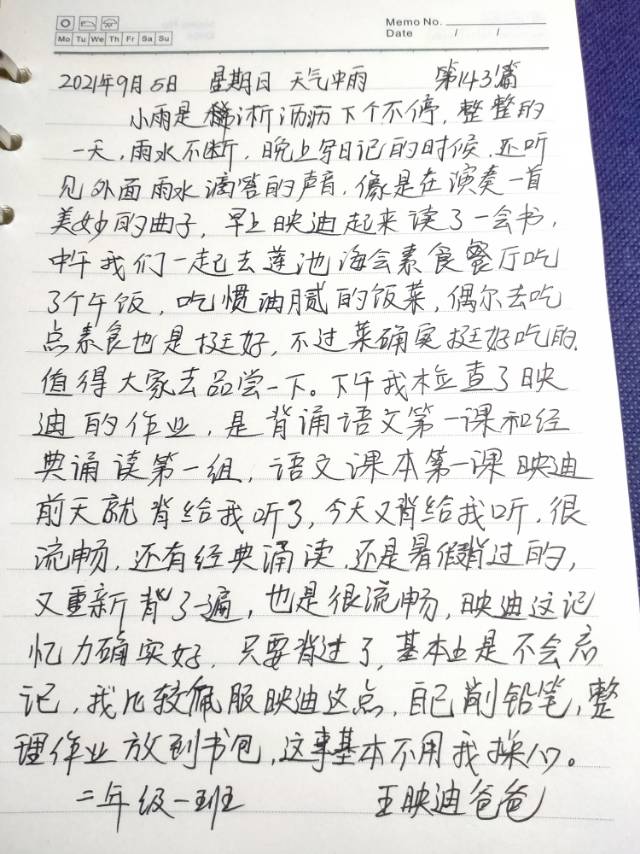 Memo No.
Mo Tu We Th Fr Sa Su
Date / /
2021年9月5日 星期日 天气中雨 第143篇
小雨是淅淅沥沥下个不停,整整的
一天,雨水不断,晚上写日记的时候,还听
见外面雨水滴答的声音,像是在演奏一首
美妙的曲子,早上映迪起来读了一会书,
中午我们一起去莲池海会素食餐厅吃
了个午饭,吃惯油腻的饭菜,偶尔去吃
点素食也是挺好,不过菜确实挺好吃的,
值得大家去品尝一下。下午我检查了映
迪的作业,是背诵语文第一课和经
典诵读第一组,语文课本第一课映迪
前天就背给我听了,今天又背给我听,很
流畅,还有经典诵读,还是暑假背过的,
又重新背了一遍,也是很流畅,映迪这记
忆力确实好,只要背过了,基本上是不会忘
记,我比较佩服映迪这点,自己削铅笔,整
理作业放到书包,这事基本不用我操心。
二年级一班 王映迪爸爸